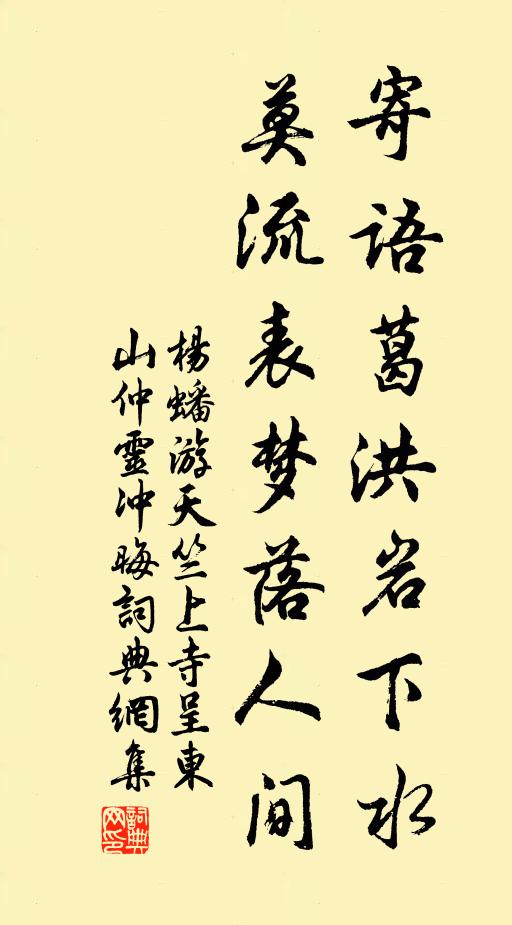 寄语葛洪岩下水
莫流表梦落人间
杨蟠游天竺上寺呈東
山仲靈冲晦詞典網集
詞典網印